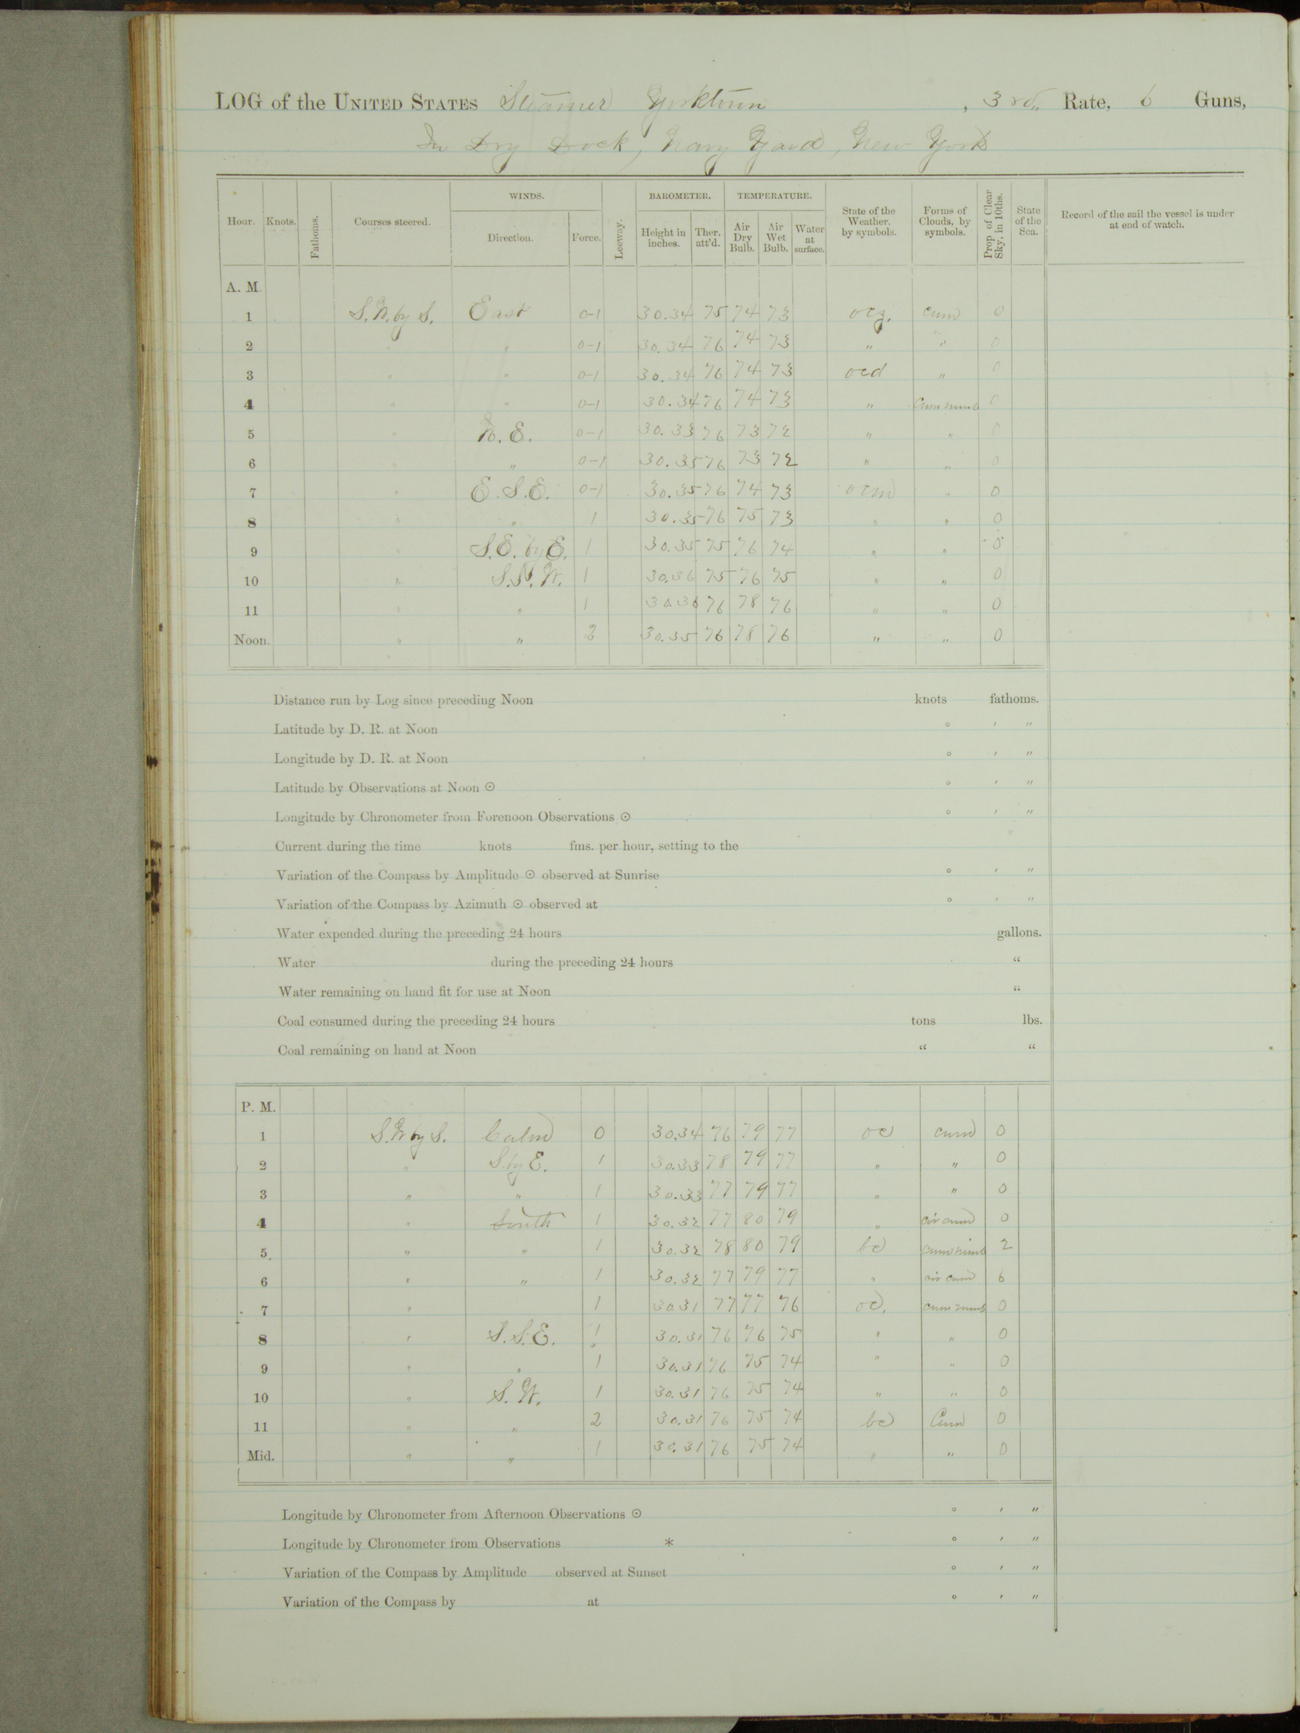 LOG of the UNITED STATES Steamer Yorktown , 3rd. Rate, 6 Guns,
In Dry Dock, Navy Yard, New York
Hour. Knots. Fathoms. Courses steered. WINDS. Direction. Force. Leeway. BAROMETER. Height in inches. Ther. att'd. TEMPERATURE. Air Dry Bulb. Air Wet Bulb. Water at surface. State of the Weather, by symbols. Forms of Clouds, by symbols. Prop of Clear Sky, in 10ths. State of the Sea. Record of the sail the vessel is under at end of watch.
A. M.
1 S.W. by S. East 0-1 30.34 75 74 73 ocg. cum 0
2 " " 0-1 30.34 76 74 73 " " 0
3 " " 0-1 30.34 76 74 73 ocd " 0
4 " " 0-1 30.34 76 74 73 " Cum nimb 0
5 " N. E. 0-1 30.33 76 73 72 " " 0
6 " " 0-1 30.35 76 73 72 " " 0
7 " E. S. E. 0-1 30.35 76 74 73 ocm " 0
8 " " 1 30.35 76 75 73 " " 0
9 " S.E. by E. 1 30.35 75 76 74 " " 0
10 " S.S.W. 1 30.36 75 76 75 " " 0
11 " " 1 30.36 76 78 76 " " 0
Noon. " " 2 30.35 76 78 76 " " 0
Distance run by Log since preceding Noon knots fathoms.
Latitude by D. R. at Noon ° ' "
Longitude by D. R. at Noon ° ' "
Latitude by Observations at Noon ⊙ ° ' "
Longitude by Chronometer from Forenoon Observations ⊙ ° ' "
Current during the time knots fms. per hour, setting to the
Variation of the Compass by Amplitude ⊙ observed at Sunrise ° ' "
Variation of the Compass by Azimuth ⊙ observed at ° ' "
Water expended during the preceding 24 hours gallons.
Water during the preceding 24 hours "
Water remaining on hand fit for use at Noon "
Coal consumed during the preceding 24 hours tons lbs.
Coal remaining on hand at Noon " "
P. M.
1 S.W. by S. Calm 0 30.34 76 79 77 oc cum 0
2 " S. by E. 1 30.33 78 79 77 " " 0
3 " " 1 30.33 77 79 77 " " 0
4 " South 1 30.32 77 80 79 " cir cum 0
5 " " 1 30.32 78 80 79 bc cum nimb 2
6 " " 1 30.32 77 79 77 " cir cum 6
7 " 1 30.31 77 77 76 oc. cum nimb 0
8 " S.S.E. 1 30.31 76 76 75 " " 0
9 " " 1 30.31 76 75 74 " " 0
10 " S.W. 1 30.31 76 75 74 " " 0
11 " " 2 30.31 76 75 74 bc Cum 0
Mid. " " 1 30.31 76 75 74 " " 0
Longitude by Chronometer from Afternoon Observations ⊙ ° ' "
Longitude by Chronometer from Observations * ° ' "
Variation of the Compass by Amplitude observed at Sunset ° ' "
Variation of the Compass by at ° ' "